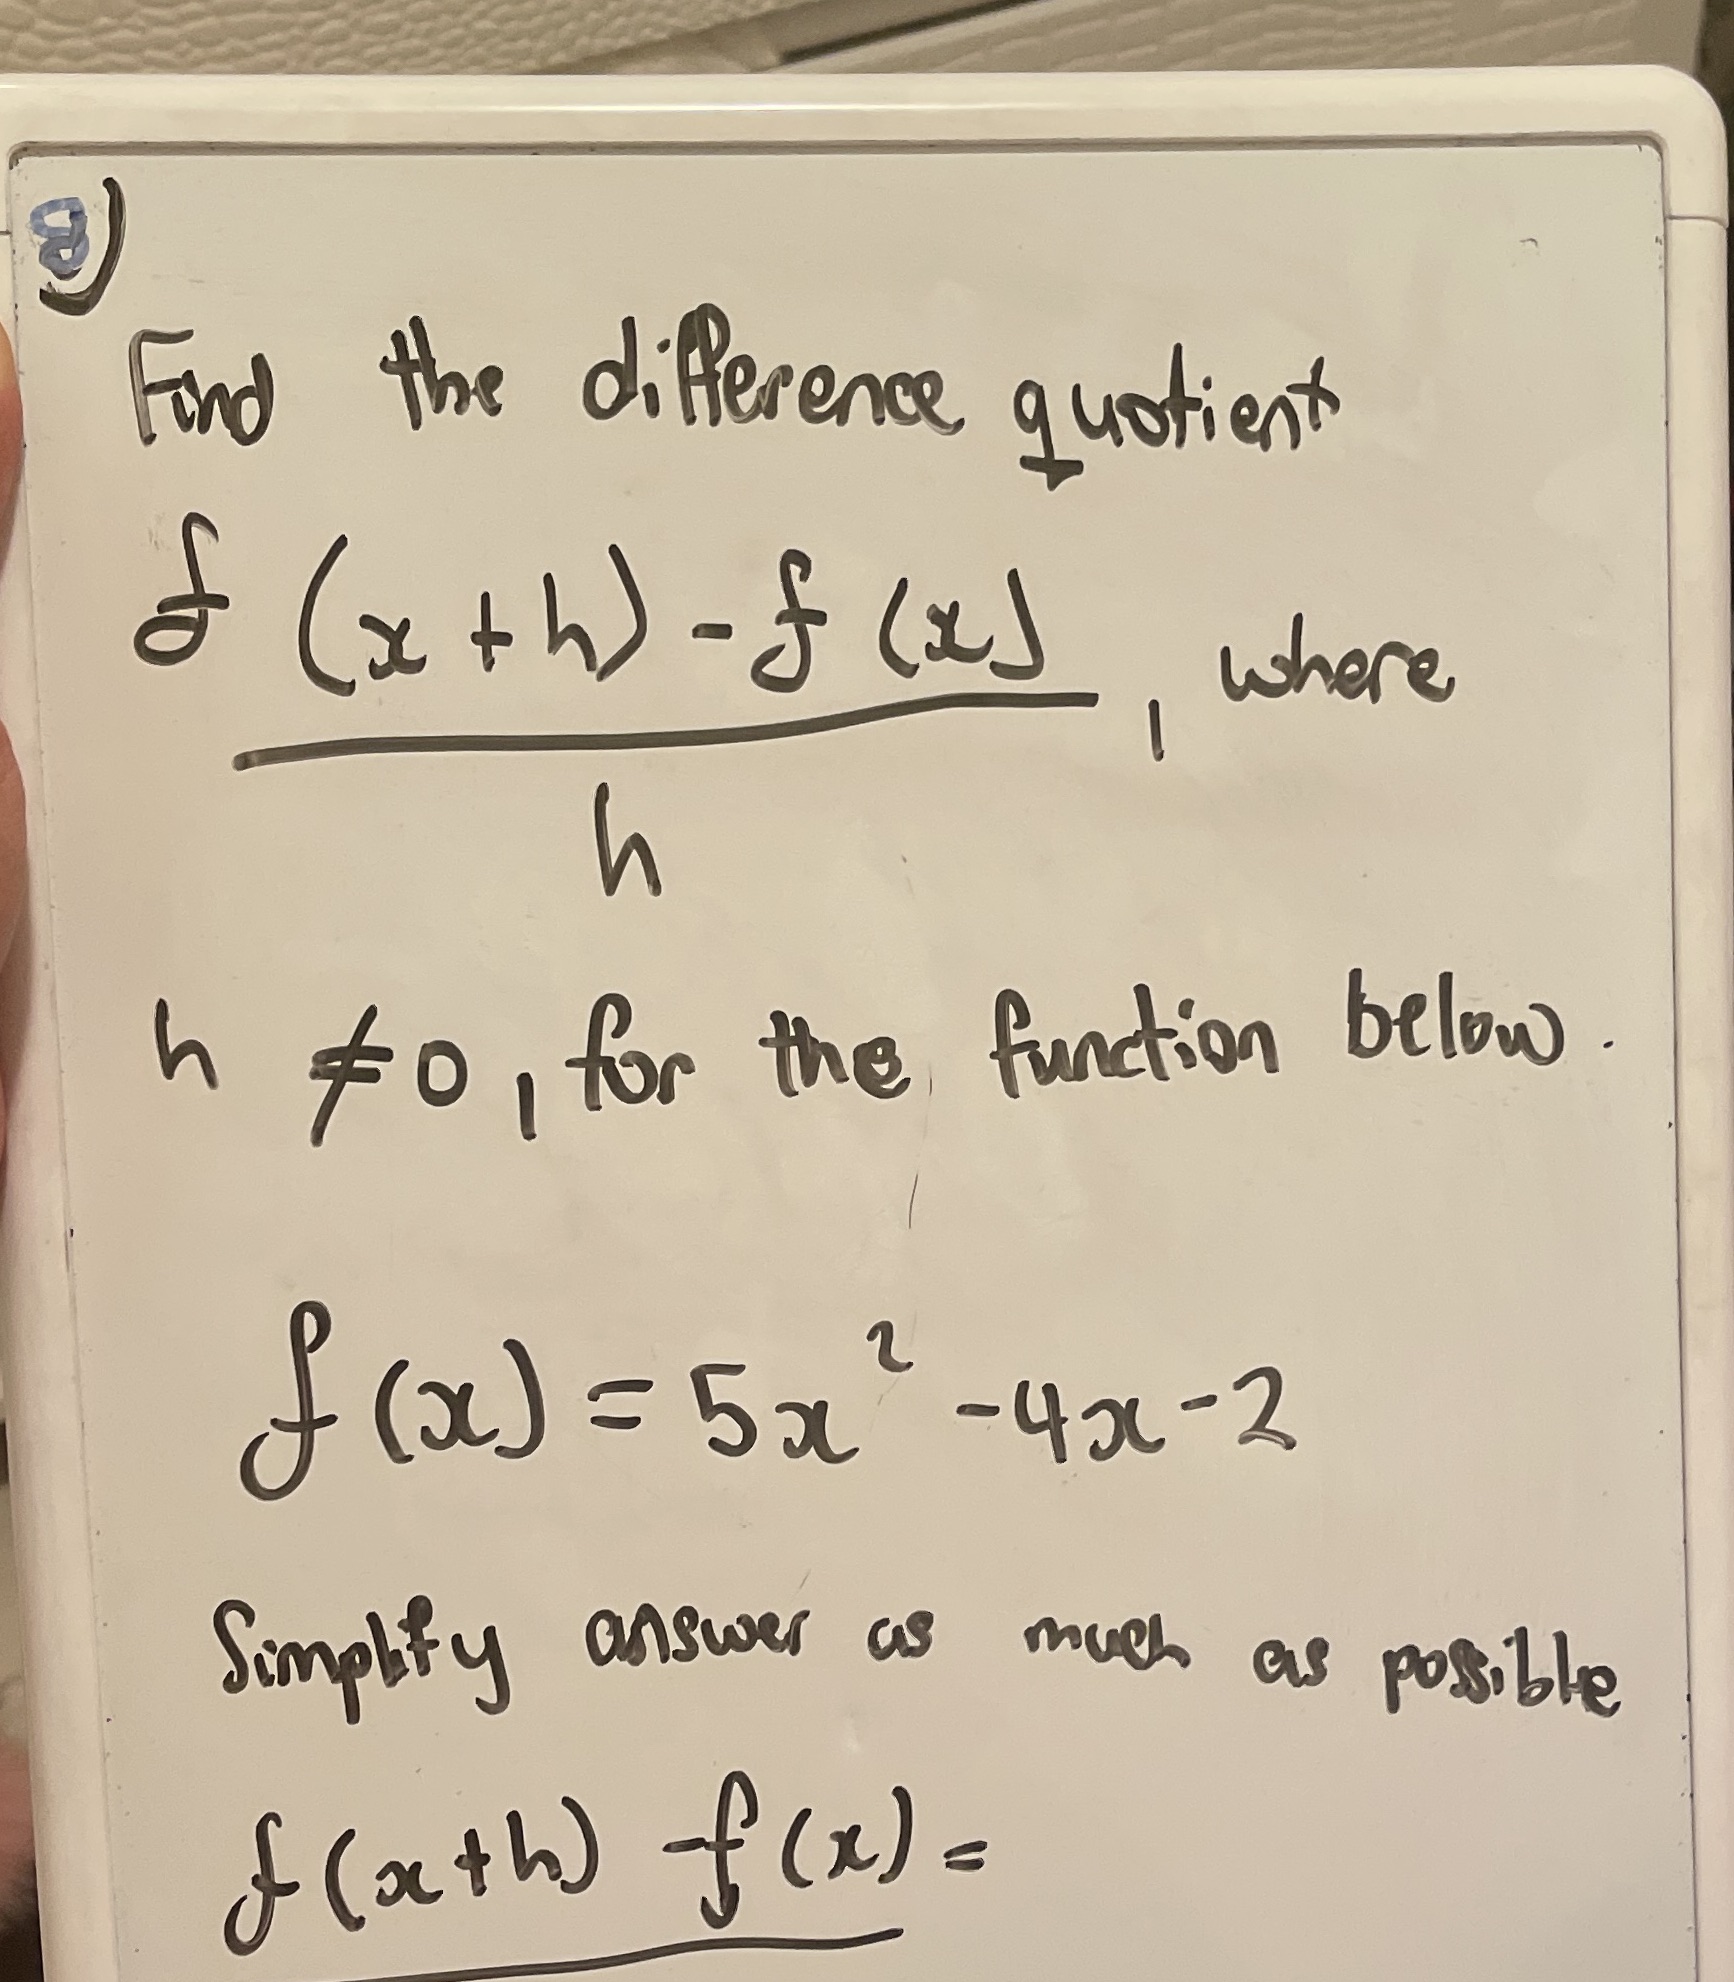 8)
Find the difference quotient
f (x + h) - f (x)
, where
h
h ≠ 0, for the function below.
f (x) = 5x² - 4x - 2
Simplify answer as much as possible
f(x+h) - f(x) =